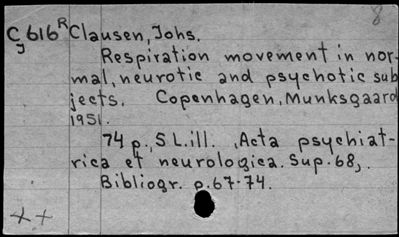 8
C616R Clausen, Johs.
g
Respiration movement in nor-
mal, neurotic and psychotic sub
jects. Copenhagen, Munksgaard
1951.
74 p., 5 L.ill. , Acta psychiat-
rica et neurologica. Sup. 68,.
Bibliogr. p.67-74.
++